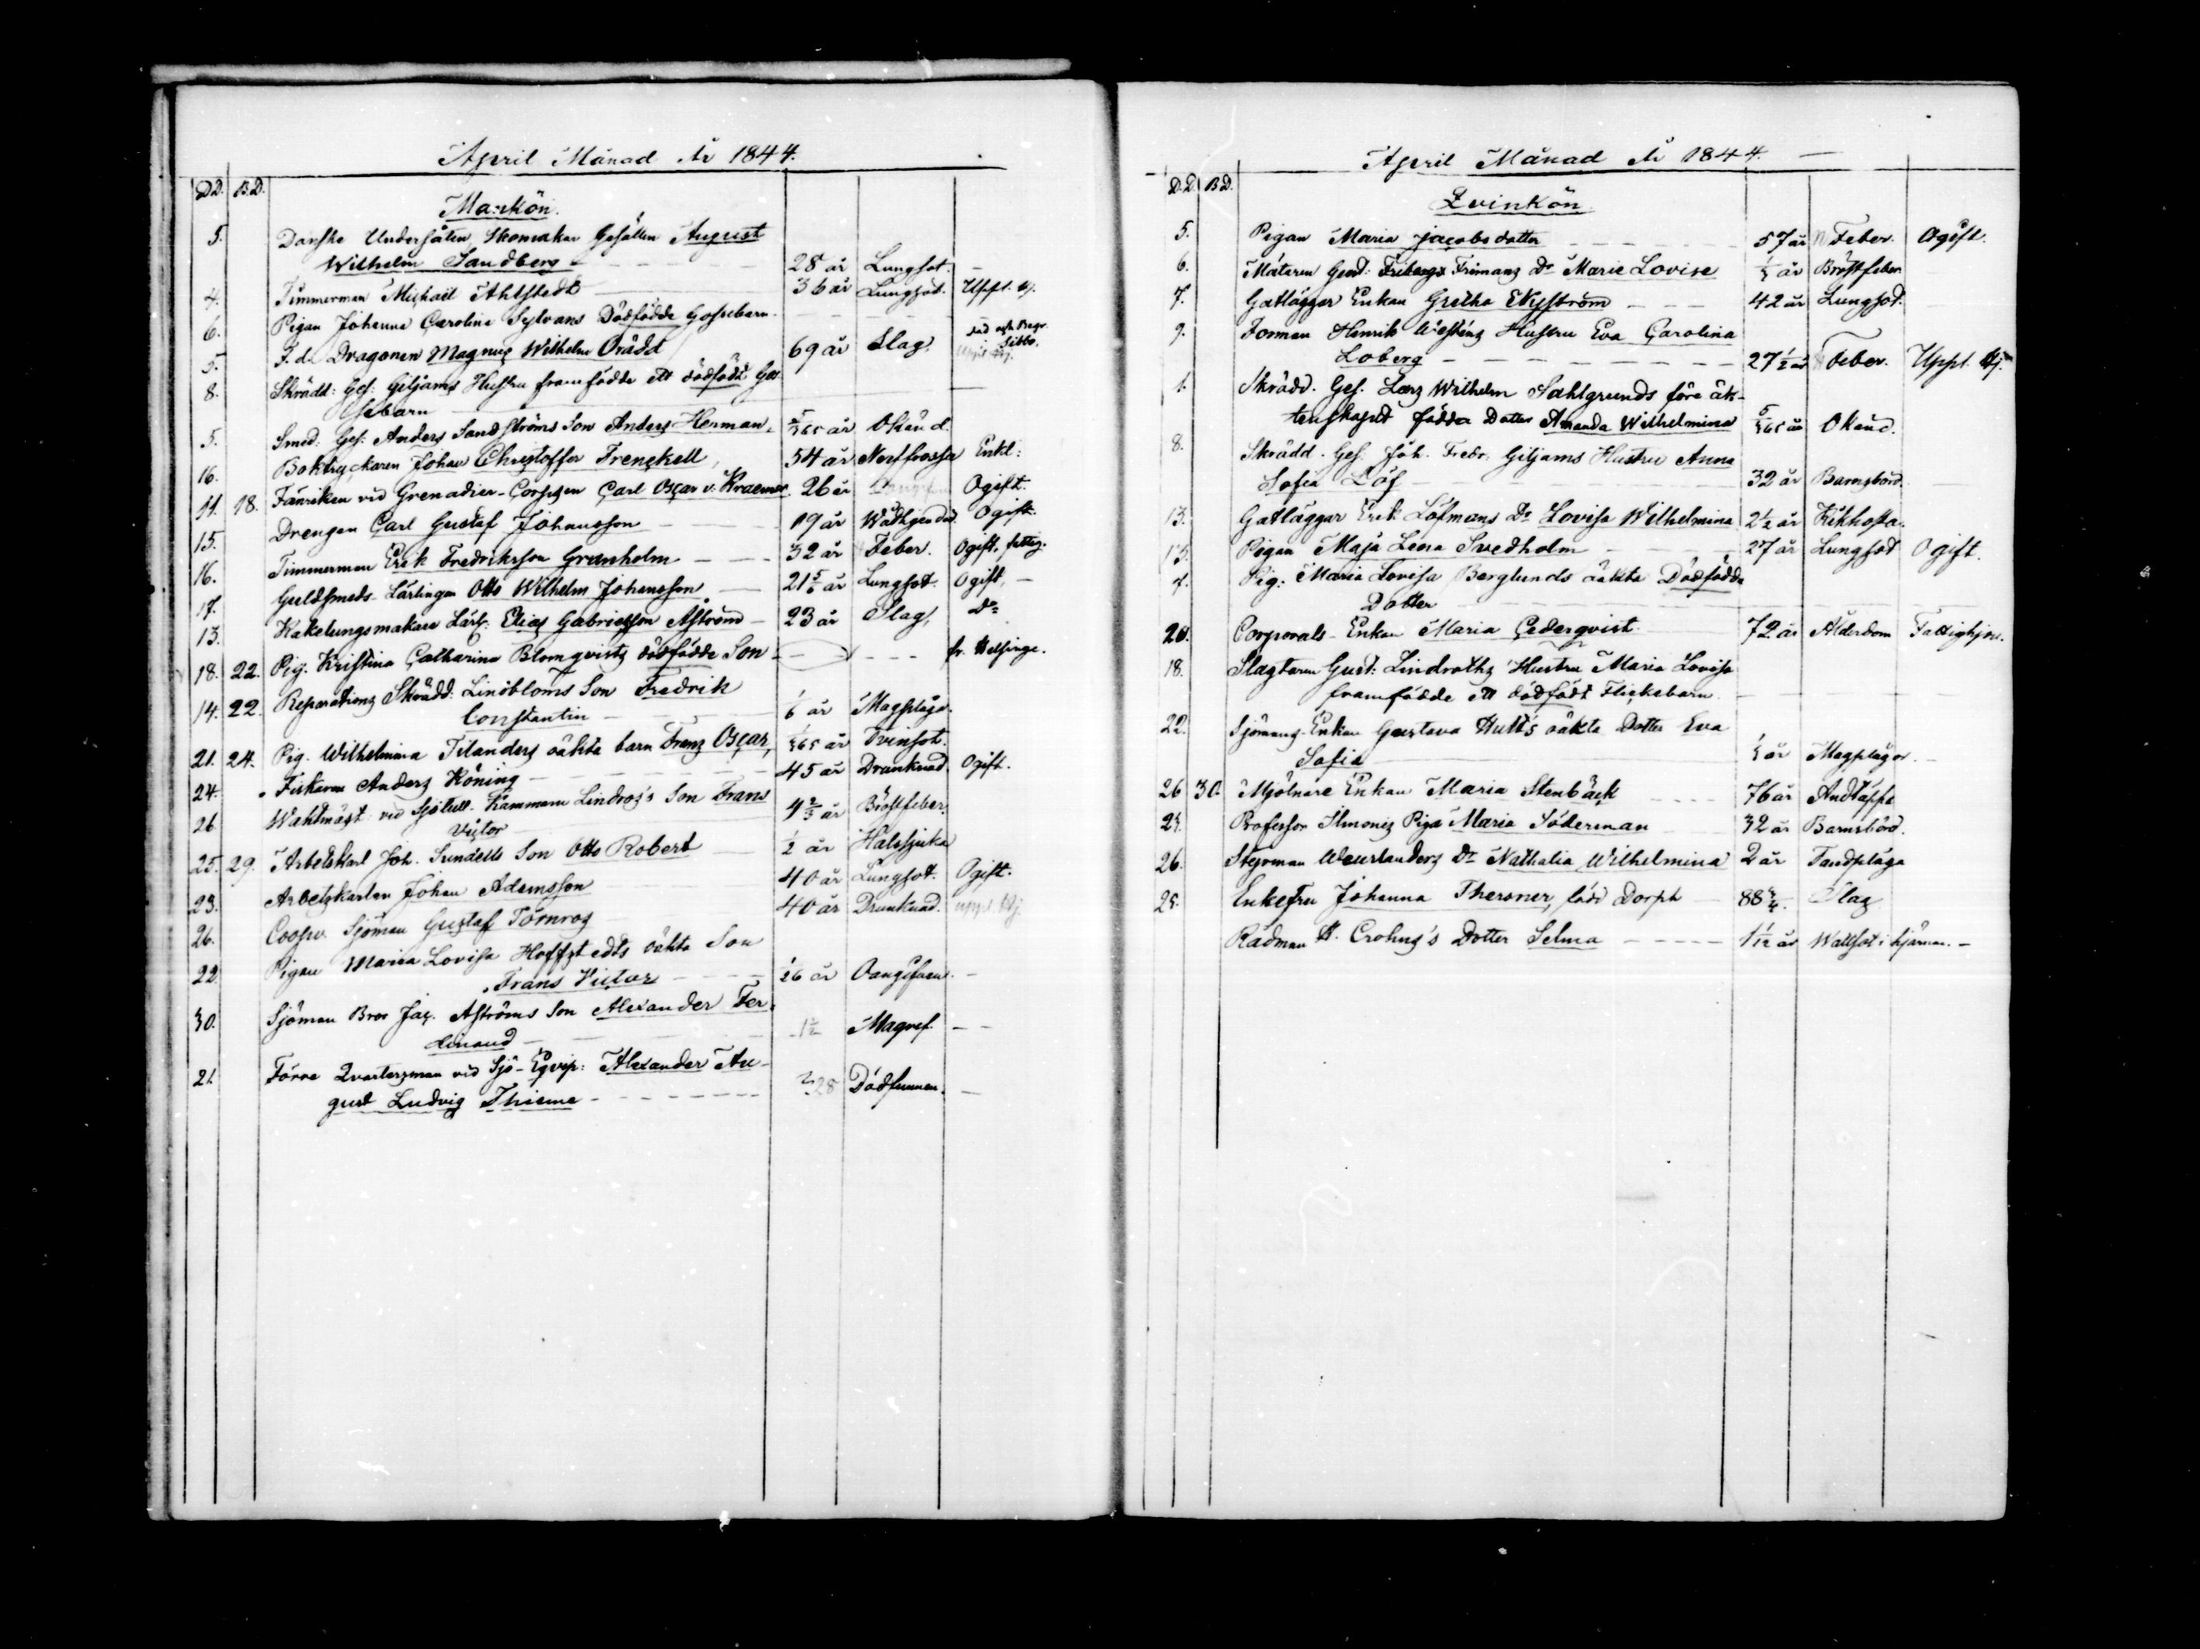 April Månad År 1844.
D.D. B.D.
Mankön.
5. Danske Undersåten, Skomakar Gesällen August
Wilhelm Sandberg 28 år Lungsot.
4. Timmerman Michail Ahlstedt 36 år Lungsot.
6. Pigan Johanna Carolina Sylvans Dödfödda Gossebarn
5. F.d. Dragonen Magnus Wilhelm Orädd 69 år Slag.
8. Skrädd: Ges: Giljams Hustru framfödde ett dödfödt Gos-
sebarn
5. Smed. Ges: Anders Sandströms Son Anders Herman, 5/365 år Okänd.
16. Boktryckaren Johan Christoffer Frenckell, 54 år Enkl:
11. 18. Fänriken vid Grenadier-Corpsen Carl Oscar v. Kraemer. 26 år Ogift.
15. Drengen Carl Gustaf Johansson 19 år Ogift.
16. Timmerman Erik Fredriksson Granholm 32 år Feber. Ogift, fattig.
17. Guldsmeds-Lärlingen Otto Wilhelm Johansson 21 5/6 år Lungsot. Ogift,
13. Kakelungsmakare Lärl: Elias Gabrielsson Åström 23 år Slag, Do
18. 22. Pig. Kristina Catharina Blomqvists dödfödde Son fr. Helsinge.
14. 22. Reparations Skrädd: Lindbloms Son Fredrik
Constantin 1/6 år Magplåga.
21. 24. Pig. Wilhelmina Tilanders oäkta barn Franz Oscar, 1/365 år Tvinsot.
24. Fiskaren Anders Köning 45 år Drunknad. Ogift.
26. Waktmäst: vid Sjötull-Kammaren Lindros's Son Frans
Victor 4 2/3 år Bröstfeber.
25. 29. Arbetskarl Joh. Sundells Son Otto Robert 1/2 år Halssjuka
23. Arbetskarlen Johan Adamsson 40 år Lungsot. Ogift.
26. Coopv. Sjöman Gustaf Törnros 40 år Drunknad.
22. Pigan Maria Lovisa Hoffstedts oäkta Son
Frans Victor 1/26 år
30. Sjöman Bror Jac. Åströms Son Alexander Fer-
dinand 1 1/2 Magref.
21. Förre Qvartersman vid Sjö-Eqvip: Alexander Au-
gust Ludvig Thieme 28 Dödfunnen.
April Månad År 1844.
D.D. B.D.
Qvinkön
5. Pigan Maria Jacobsdotter 57 år Feber. Ogift.
6. Mätaren Gust: Frimans Dr Marie Lovise år Bröstfeber
7. Gatläggar Enkan Gretha Ekström 42 år Lungsot.
9. Forman Henrik Hustru Eva Carolina
Loberg 27 1/2 år Feber.
1. Skrädd. Ges. Lars Wilhelm Sahlgrunds före äk-
tenskapet födda Dotter Amanda Wilhelmina 5/365 år Okänd.
8. Skrädd. Ges. Joh. Fredr. Giljams Hustru Anna
Sofia Löf 32 år Barnsbörd.
13. Gatläggar Erik Löfmans Dr Lovisa Wilhelmina 2 1/2 år Kikhosta.
15. Pigan Maja Lena Svedholm 27 år Lungsot Ogift.
Pig: Maria Lovisa Berglunds oäkta Dödfödda
Dotter
20. Corporals-Enkan Maria Cederqvist 72 år Ålderdom Fattighjon.
18. Slagtaren Gust: Lindroths Hustru Maria Lovisa
framfödde ett dödfödt Flickebarn.
22. Sjömans-Enkan Gustava Hult's oäkta Dotter Eva
Sofia år Magplågor.
26 30. Mjölnare Enkan Maria Stenbäck 76 år Andtäppa
Professor Ilmonis Piga Maria Söderman 32 år Barnsbörd.
26. Styrman Dr Nathalia Wilhelmina 2 år Tandplåga
25. Enkefru Johanna Theroner, född Dorph 88 3/4. Slag
Rådman H. Crohns's Dotter Selma 1 1/12 år Wattsot i hjärnan.